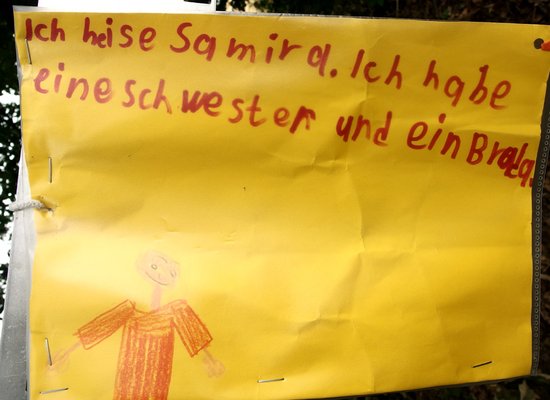 Ich heise Samira. Ich habe
eine schwester und ein